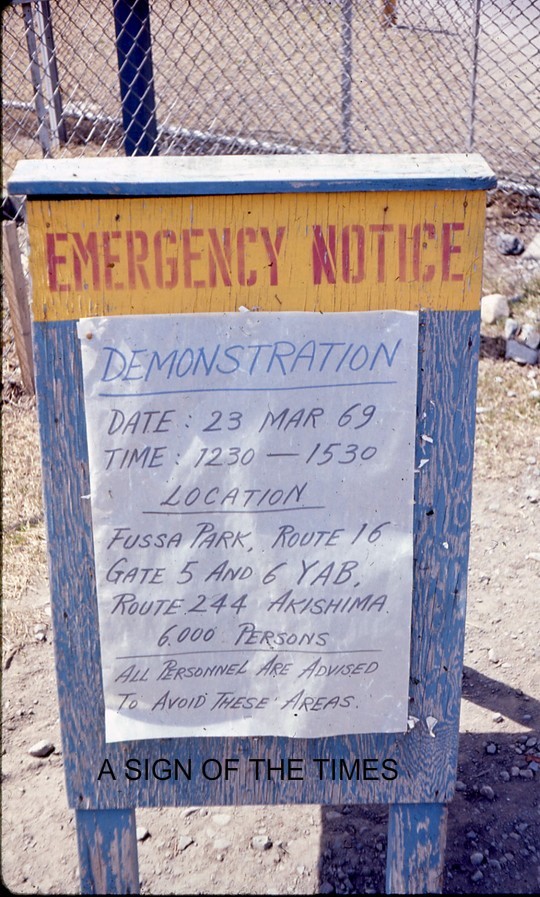 EMERGENCY NOTICE
DEMONSTRATION
DATE : 23 MAR 69
TIME : 1230 — 1530
LOCATION
FUSSA PARK, ROUTE 16
GATE 5 AND 6 YAB,
ROUTE 244 AKISHIMA.
6000 PERSONS
ALL PERSONNEL ARE ADVISED
TO AVOID THESE AREAS.
A SIGN OF THE TIMES